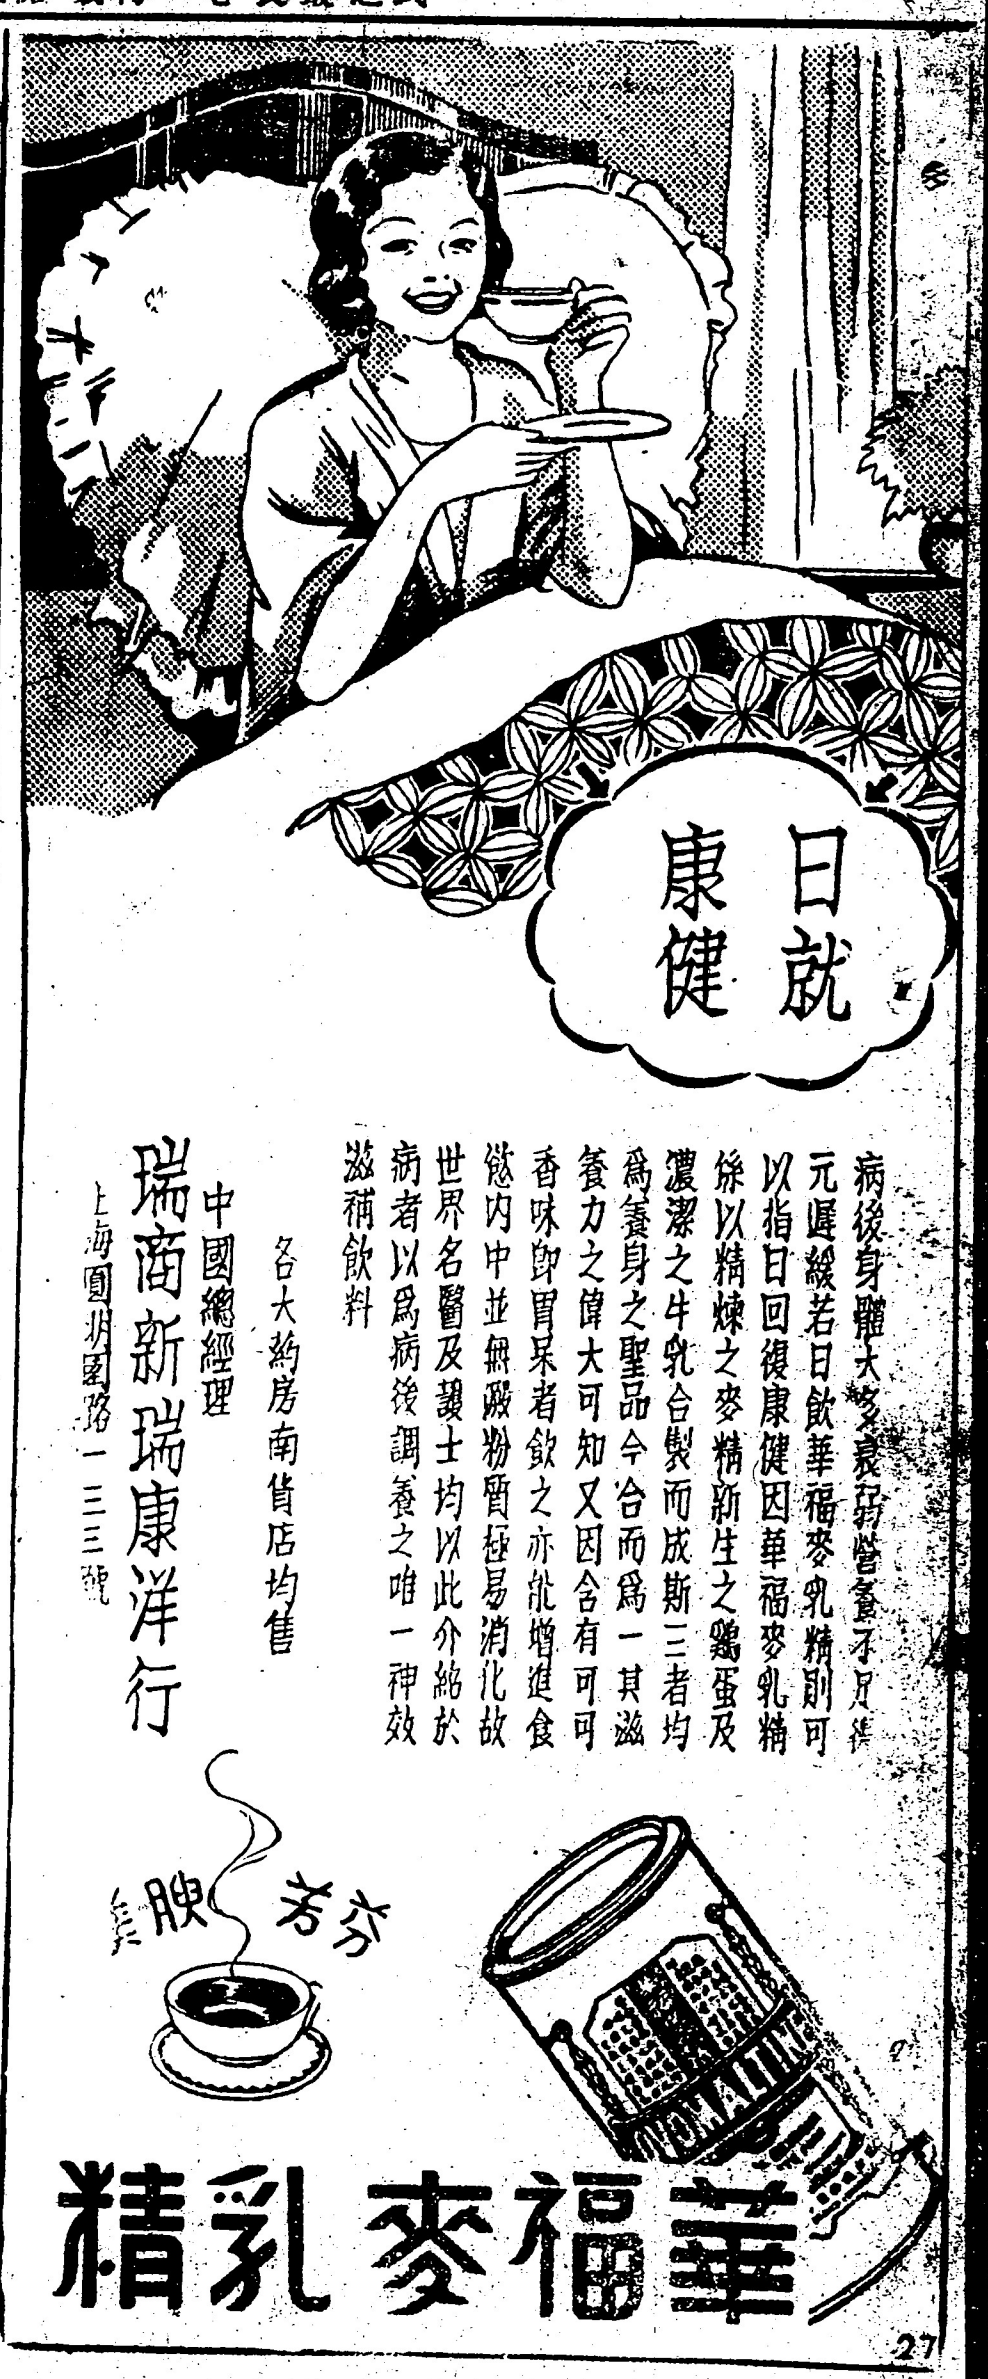 日就
康健
病後身體大多衰弱營養不足復
元遲緩若日飲華福麥乳精則可
以指日回復康健因華福麥乳精
係以精煉之麥精新生之鷄蛋及
濃潔之牛乳合製而成斯三者均
爲養身之聖品今合而爲一其滋
養力之偉大可知又因含有可可
香味卽胃呆者飲之亦能增進食
慾內中並無澱粉質極易消化故
世界名醫及護士均以此介紹於
病者以爲病後調養之唯一神效
滋補飲料
各大葯房南貨店均售
中國總經理
瑞商新瑞康洋行
上海圓明園路一三三號
芬芳
腴美
華福麥乳精
27